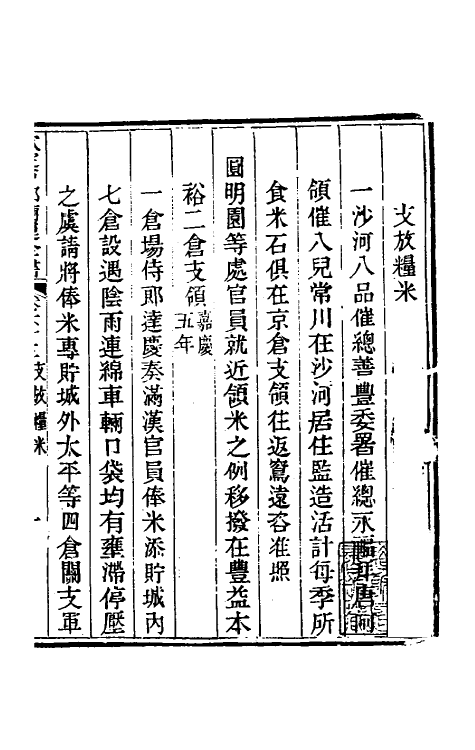 支放糧米
一沙河八品催總善豐委署催總永福珅唐阿
領催八兒常川在沙河居住監造活計每季所
食米石俱在京倉支領往返窵遠咨准照
圓明園等處官員就近領米之例移撥在豐益本
裕二倉支領嘉慶
五年
一倉場侍郎達慶奏滿漢官員俸米添貯城內
七倉設遇陰雨連綿車輛口袋均有壅滯停壓
之虞請將俸米專貯城外太平等四倉關支軍
支放糧米
一